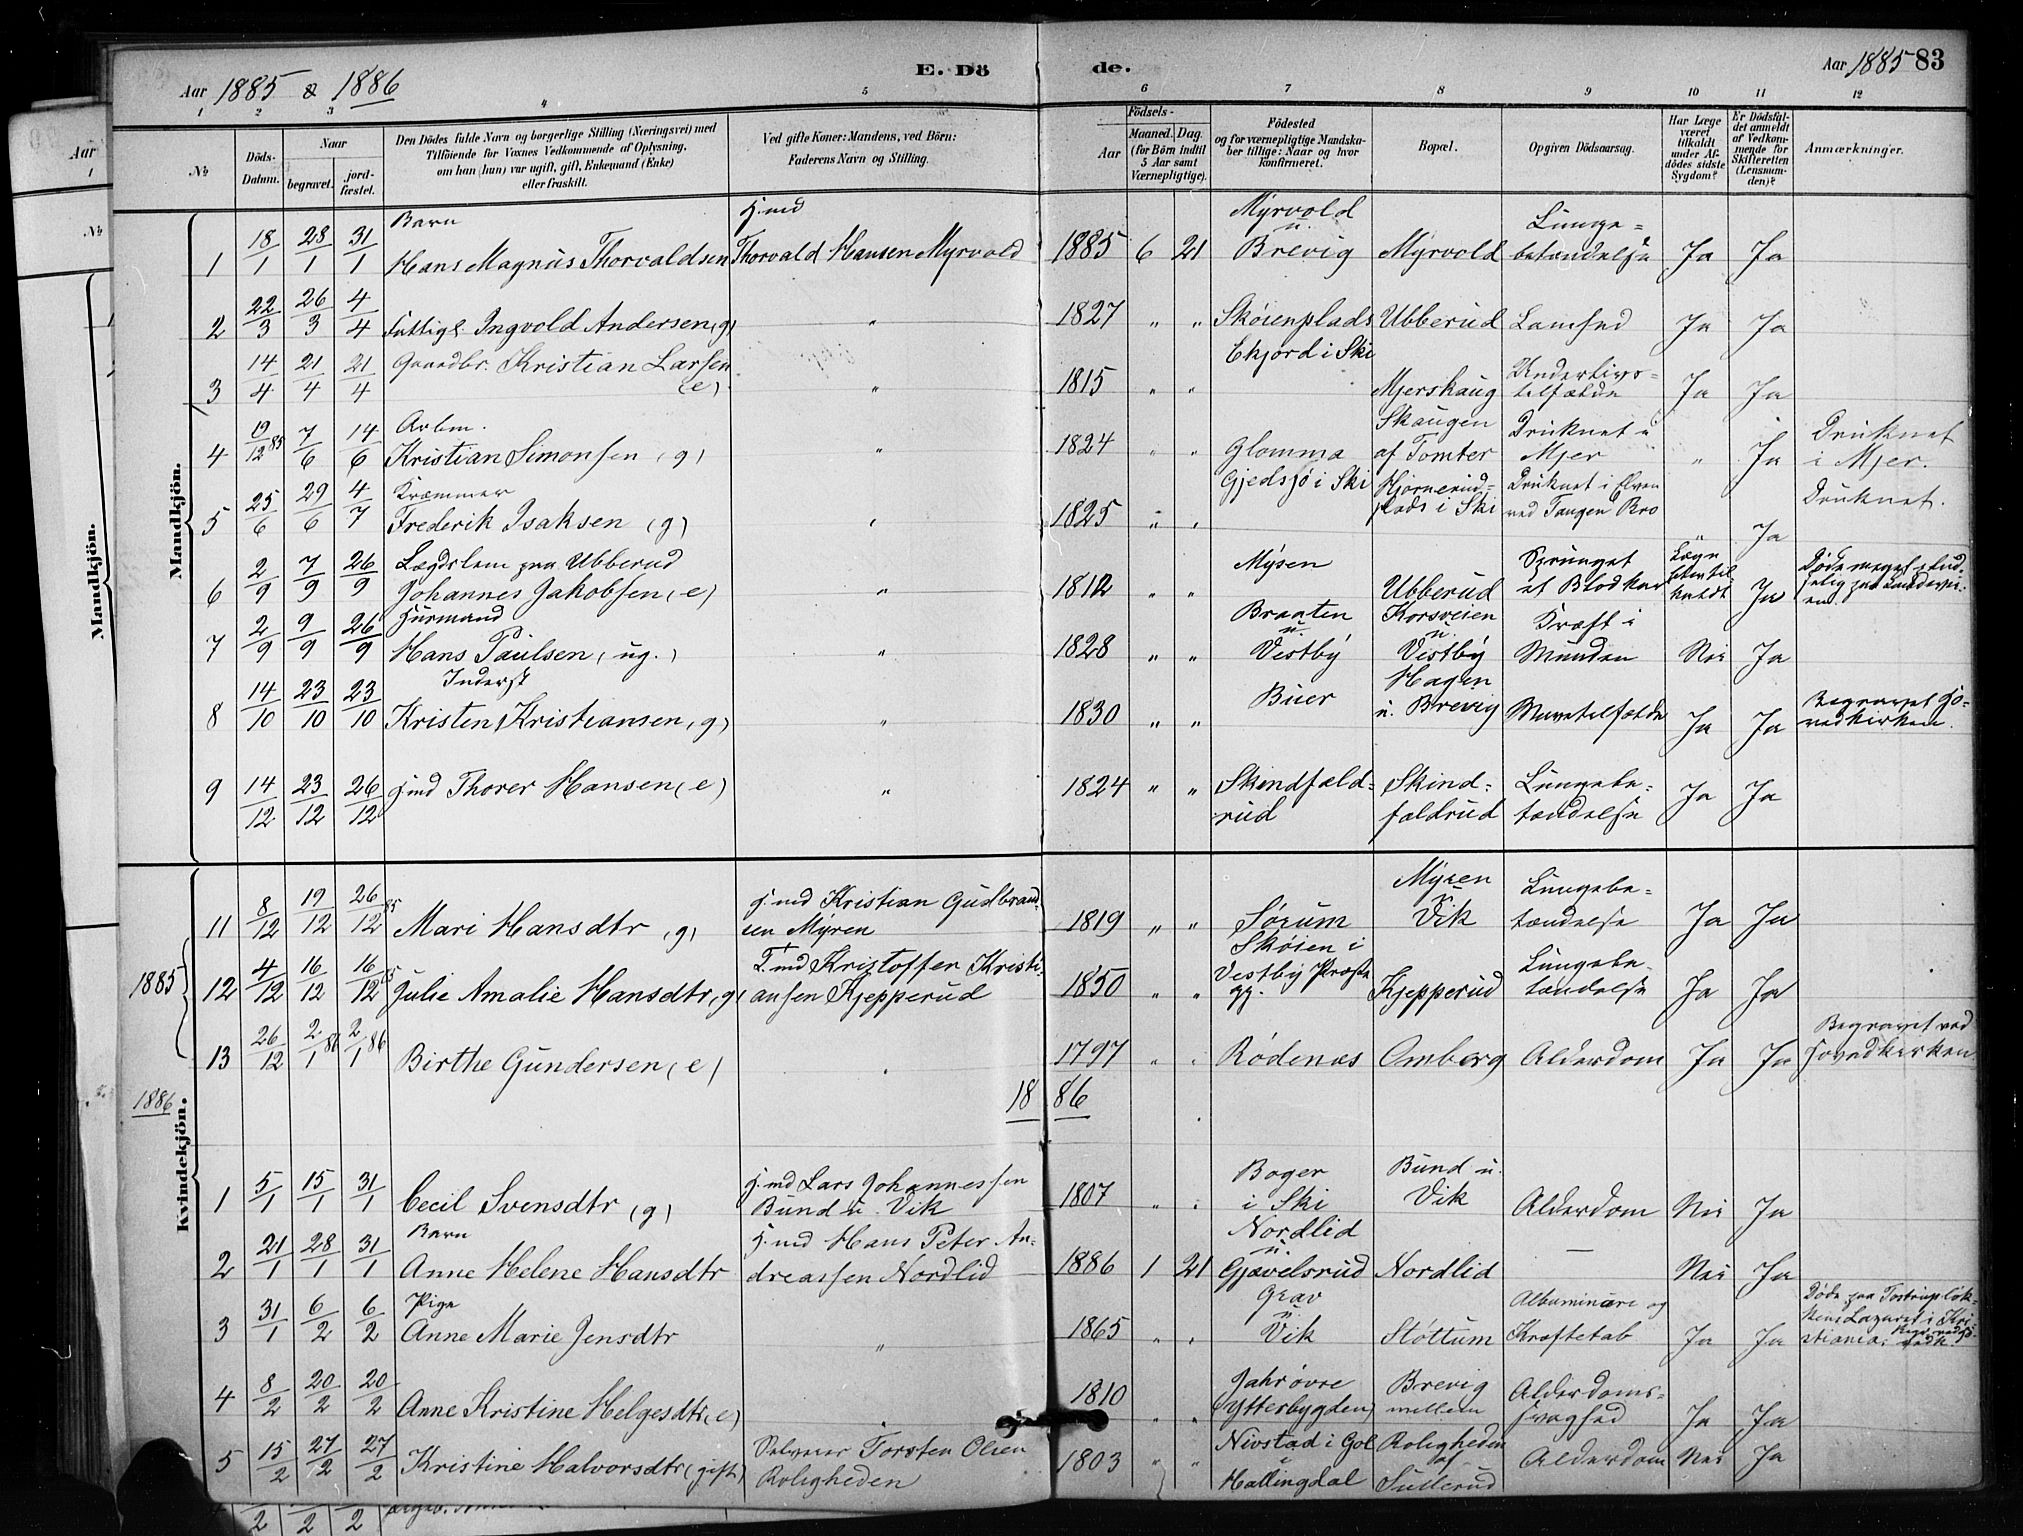 Aar 1885 & 1886 E. Dö de. Aar 1885 83
1 2 3 4 5 6 7 8 9 10 11 12
№ Döds-Datum. Naar begravet. jordfæstet. Den Dödes fulde Navn og borgerlige Stilling (Næringsvei) med Tilföiende for Voxnes Vedkommende af Oplysning, om han (hun) var ugift, gift, Enkemand (Enke) eller fraskilt. Ved gifte Koner: Mandens, ved Börn: Faderens Navn og Stilling. Födsels- Aar Maaned. Dag. (for Börn indtil 5 Aar samt Værnepligtige). Födested og for værnepligtige Mandskaber tillige: Naar og hvor konfirmeret. Bopæl. Opgiven Dödsaarsag. Har Læge været tilkaldt under Afdödes sidste Sygdom? Er Dödsfaldet anmeldt af Vedkommende for Skifteretten (Lensmanden)? Anmærkninger.
Mandkjön.
1 18/1 28/1 31/1 Barn Hans Magnus Thorvaldsen Hmd Thorvald Hansen Myrvold 1885 6 21 Myrvold u. Brevig Myrvold Lungebetændelse Ja Ja
2 22/3 26/3 4/4 Fattigl. Ingvold Andersen (g) " 1827 " " Skøienplads Ubberud Lamhed Ja Ja
3 14/4 21/4 21/4 Gaardbr. Kristian Larsen (e) " 1815 " " Ekjord i Ski Mjerskaug Underlivstilfælde Ja Ja
4 19/12 85 7/6 14/6 Arbm. Kristian Simonsen (g) " 1824 " " Glomma Skaugen af Tomter Druknet i Mjer " Ja Druknet i Mjer.
5 25/6 29/6 4/7 Kræmmer Frederik Isaksen (g) " 1825 " " Gjedsjø i Ski Hjornerudplads i Ski Druknet i Elven ved Tangen Bro Ja Druknet.
6 2/9 7/9 26/9 Lægdslem paa Ubberud Johannes Jakobsen (e) " 1812 " " Mysen Ubberud Sprunget et Blodkar Læge tilkaldt Ja Døde meget
7 2/9 9/9 26/9 Husmand Hans Paulsen (ug.) " 1828 " " Braaten u. Vestby Korsveien u. Vestby Kræft i Munden Nei Ja
8 14/10 23/10 23/10 Inderst Kristen Kristiansen (g) " 1830 " " Buer Hagen u. Brevig Mavetilfælde Ja Ja Begravet Hovedkirken.
9 14/12 23/12 26/12 Hmd Thorer Hansen (e) " 1824 " " Skindfældrud Skindfældrud Lungebetændelse Ja Ja
1885
Kvindekjön.
11 8/12 19/12 26/12 85 Mari Hansdtr (g) Hmd Kristian Gudbrandsen Myren 1819 " " Sørum Myren u. Vik Lungebetændelse Ja Ja
12 4/12 16/12 16/12 85 Julie Amalie Hansdtr (g) F. md Kristoffer Kristiansen Kjepperud 1850 " " Skøien i Vestby Præstegj. Kjepperud Lungebetændelse Ja Ja
13 26/12 2/1 86 2/1 86 Birthe Gundersen (e) " 1797 " " Rødenæs Omberg Alderdom Ja Ja Begravet ved Hovedkirken
1886 1886
1 5/1 15/1 31/1 Cecil Svensdtr (g) Hmd Lars Johannessen Bund u. Vik 1807 " " Boger i Ski Bund u. Vik Alderdom Nei Ja
2 21/1 28/1 31/1 Barn Anne Helene Hansdtr Hmd Hans Peter Andreassen Nordlid 1886 1 21 Nordlid u. Gjævelsrud Nordlid — Nei Ja
3 31/1 6/2 6/2 Pige Anne Marie Jensdtr " 1865 " " Grav u. Vik Støttum Albuminure og Kræftetab Ja Ja Døde paa Tostrupløkkens Lazaret i Kristiania.
4 8/2 20/2 20/2 Anne Kristine Helgesdtr (e) " 1810 " " Jahr øvre (ytterbygden) Brevig mellem Alderdomssvaghed Ja Ja
5 15/2 27/2 27/2 Kristine Halvorsdtr (gift) Selveier Torsten Olsen Roligheden 1803 " " Nivstad i Gol i Hallingdal Roligheden af Sullerud Alderdom Nei Ja